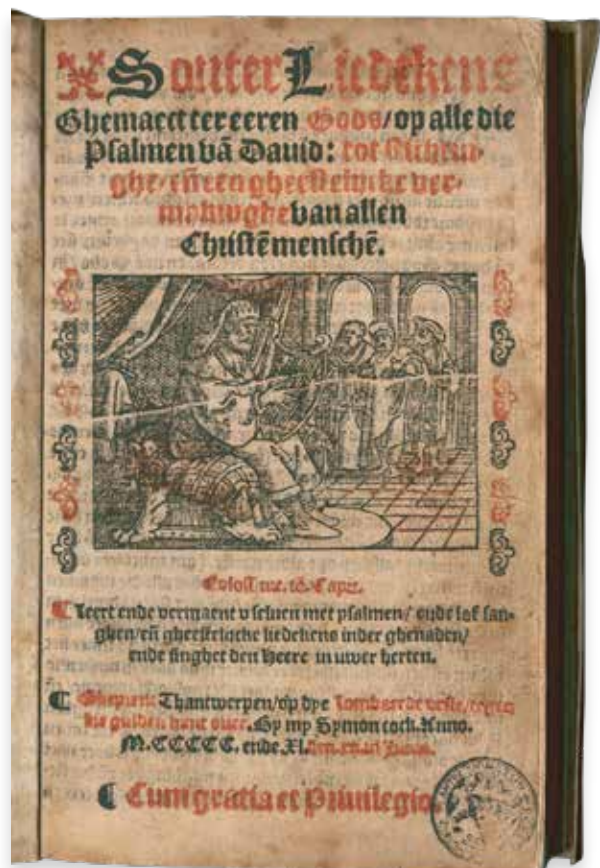 Souter Liedekens
Ghemaect ter eeren Gods/ op alle die
Psalmen vā Dauid: tot stichtin-
ghe/ eñ een gheestelijcke ver-
van allen
Christē menschē.
Coloss. iii. ca.
Leert ende vermaent v seluen met psalmen/ ende lof san-
ghen/ eñ gheestelycke liedekens inder ghenaden/
ende singhet den Heere in uwer herten.
Gheprent Thantwerpen/ op dye Lombaerde veste/ teghen
die gulden hant ouer. By my Symon cock. Anno.
M.CCCCC. ende XL.
Cum gratia et Priuilegio.